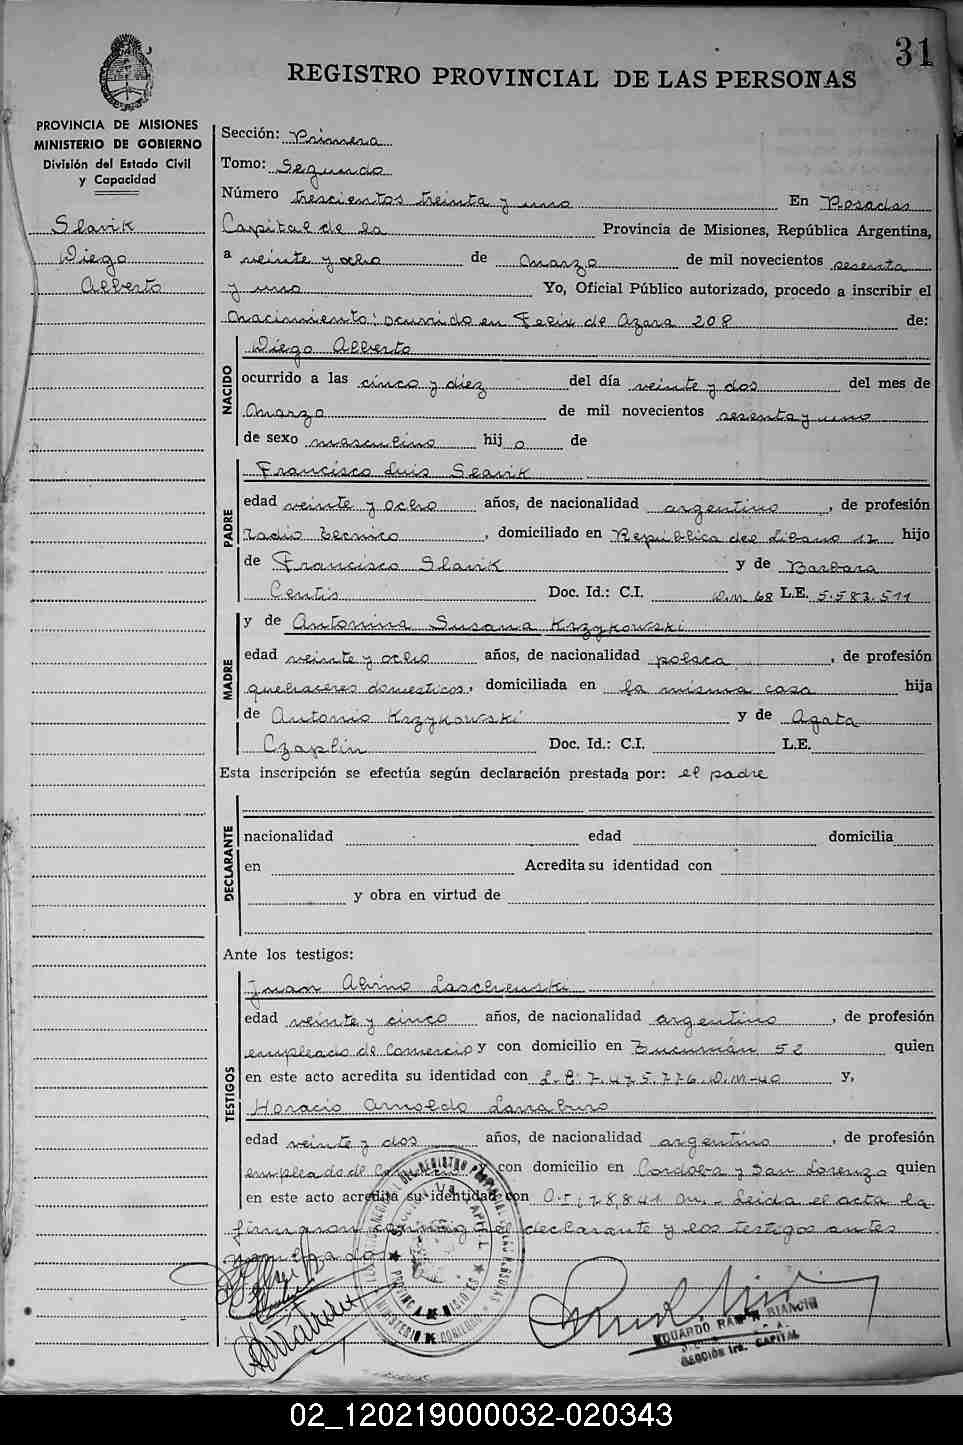 31
REGISTRO PROVINCIAL DE LAS PERSONAS
PROVINCIA DE MISIONES
MINISTERIO DE GOBIERNO
División del Estado Civil
y Capacidad
Slavik
Diego
Alberto
Sección: Primera
Tomo: Segundo
Número trescientos treinta y uno En Posadas
Capital de la Provincia de Misiones, República Argentina,
a veinte y ocho de Marzo de mil novecientos sesenta
y uno Yo, Oficial Público autorizado, procedo a inscribir el
Nacimiento: ocurrido en Felix de Azara 208 de:
NACIDO
Diego Alberto
ocurrido a las cinco y diez del día veinte y dos del mes de
Marzo de mil novecientos sesenta y uno
de sexo masculino hij o de
PADRE
Francisco Luis Slavik
edad veinte y ocho años, de nacionalidad argentino, de profesión
radio tecnico, domiciliado en Republica del Libano 12 hijo
de Francisco Slavik y de Barbara
Centis Doc. Id.: C.I. D.M. 68 L.E. 5.583.511
MADRE
y de Antonina Susana Krzykowski
edad veinte y ocho años, de nacionalidad polaca, de profesión
quehaceres domesticos, domiciliada en la misma casa hija
de Antonio Krzykowski y de Agata
Czaplin Doc. Id.: C.I. L.E.
Esta inscripción se efectúa según declaración prestada por: el padre
DECLARANTE
nacionalidad edad domicilia
en Acredita su identidad con
y obra en virtud de
Ante los testigos:
TESTIGOS
Juan Albino
edad veinte y cinco años, de nacionalidad argentino, de profesión
empleado de Comercio y con domicilio en Tucumán 52 quien
en este acto acredita su identidad con L.E. 7.475.776. D.M-40 y,
Horacio Arnoldo
edad veinte y dos años, de nacionalidad argentino, de profesión
empleado de y con domicilio en Cordoba y San Lorenzo quien
en este acto acredita su identidad con 78.841 M. - Leida el acta la
firmaron conmigo el declarante y los testigos antes
nombrados
EDUARDO RAMON BIANCHI
SECCIÓN 1ra. CAPITAL
02_120219000032-020343